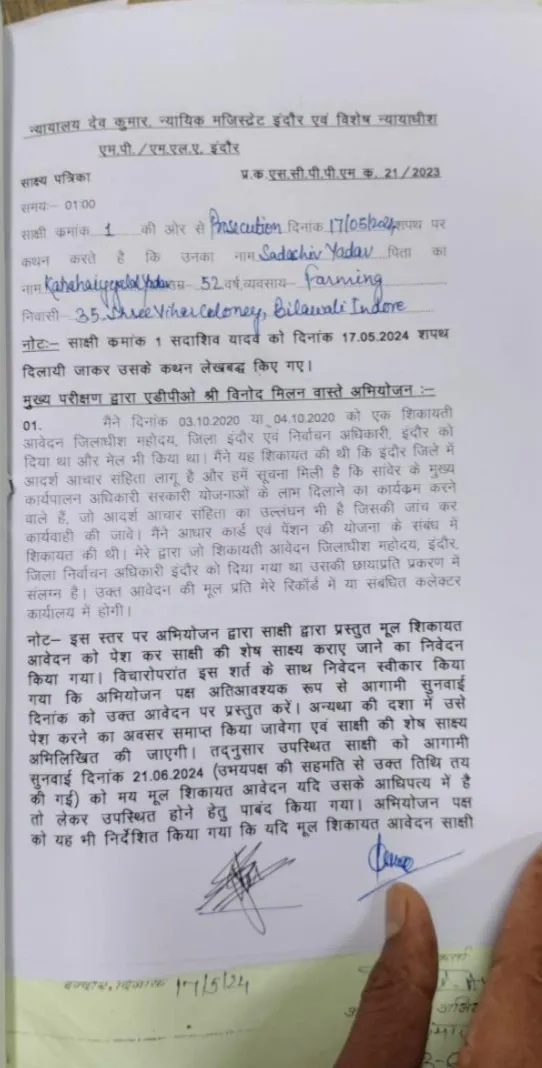 न्यायालय देव कुमार, न्यायिक मजिस्ट्रेट इंदौर एवं विशेष न्यायाधीश
एम.पी./एम.एल.ए. इंदौर
साक्ष्य पत्रिका प्र.क.एस.सी.पी.पी.एम क. 21/2023
समयः- 01:00
साक्षी कमांक 1 की ओर से Prosecution दिनांक 17/05/2024 शपथ पर
कथन करते है कि उनका नाम Sadashiv Yadav पिता का
नाम Kanhaiyalal Yadav उम्र- 52 वर्ष, व्यवसाय- Farming
निवासी- 35, Shree Vihar Coloney, Bilawali Indore
नोटः- साक्षी कमांक 1 सदाशिव यादव को दिनांक 17.05.2024 शपथ
दिलायी जाकर उसके कथन लेखबद्ध किए गए।
मुख्य परीक्षण द्वारा एडीपीओ श्री विनोद मिलन वास्ते अभियोजन :-
01. मैने दिनांक 03.10.2020 या 04.10.2020 को एक शिकायती
आवेदन जिलाधीश महोदय, जिला इंदौर एवं निर्वाचन अधिकारी, इंदौर को
दिया था और मेल भी किया था। मैंने यह शिकायत की थी कि इंदौर जिले में
आदर्श आचार संहिता लागू है और हमें सूचना मिली है कि सांवेर के मुख्य
कार्यपालन अधिकारी सरकारी योजनाओं के लाभ दिलाने का कार्यकम करने
वाले हैं, जो आदर्श आचार संहिता का उल्लंघन भी है जिसकी जांच कर
कार्यवाही की जावे। मैंने आधार कार्ड एवं पेंशन की योजना के संबंध में
शिकायत की थी। मेरे द्वारा जो शिकायती आवेदन जिलाधीश महोदय, इंदौर,
जिला निर्वाचन अधिकारी इंदौर को दिया गया था उसकी छायाप्रति प्रकरण में
संलग्न है। उक्त आवेदन की मूल प्रति मेरे रिकॉर्ड में या संबंधित कलेक्टर
कार्यालय में होगी।
नोट- इस स्तर पर अभियोजन द्वारा साक्षी द्वारा प्रस्तुत मूल शिकायत
आवेदन को पेश कर साक्षी की शेष साक्ष्य कराए जाने का निवेदन
किया गया। विचारोपरांत इस शर्त के साथ निवेदन स्वीकार किया
गया कि अभियोजन पक्ष अतिआवश्यक रूप से आगामी सुनवाई
दिनांक को उक्त आवेदन पर प्रस्तुत करें। अन्यथा की दशा में उसे
पेश करने का अवसर समाप्त किया जावेगा एवं साक्षी की शेष साक्ष्य
अभिलिखित की जाएगी। तद्नुसार उपस्थित साक्षी को आगामी
सुनवाई दिनांक 21.06.2024 (उभयपक्ष की सहमति से उक्त तिथि तय
की गई) को मय मूल शिकायत आवेदन यदि उसके आधिपत्य में है
तो लेकर उपस्थित होने हेतु पाबंद किया गया। अभियोजन पक्ष
को यह भी निर्देशित किया गया कि यदि मूल शिकायत आवेदन साक्षी
17/5/24